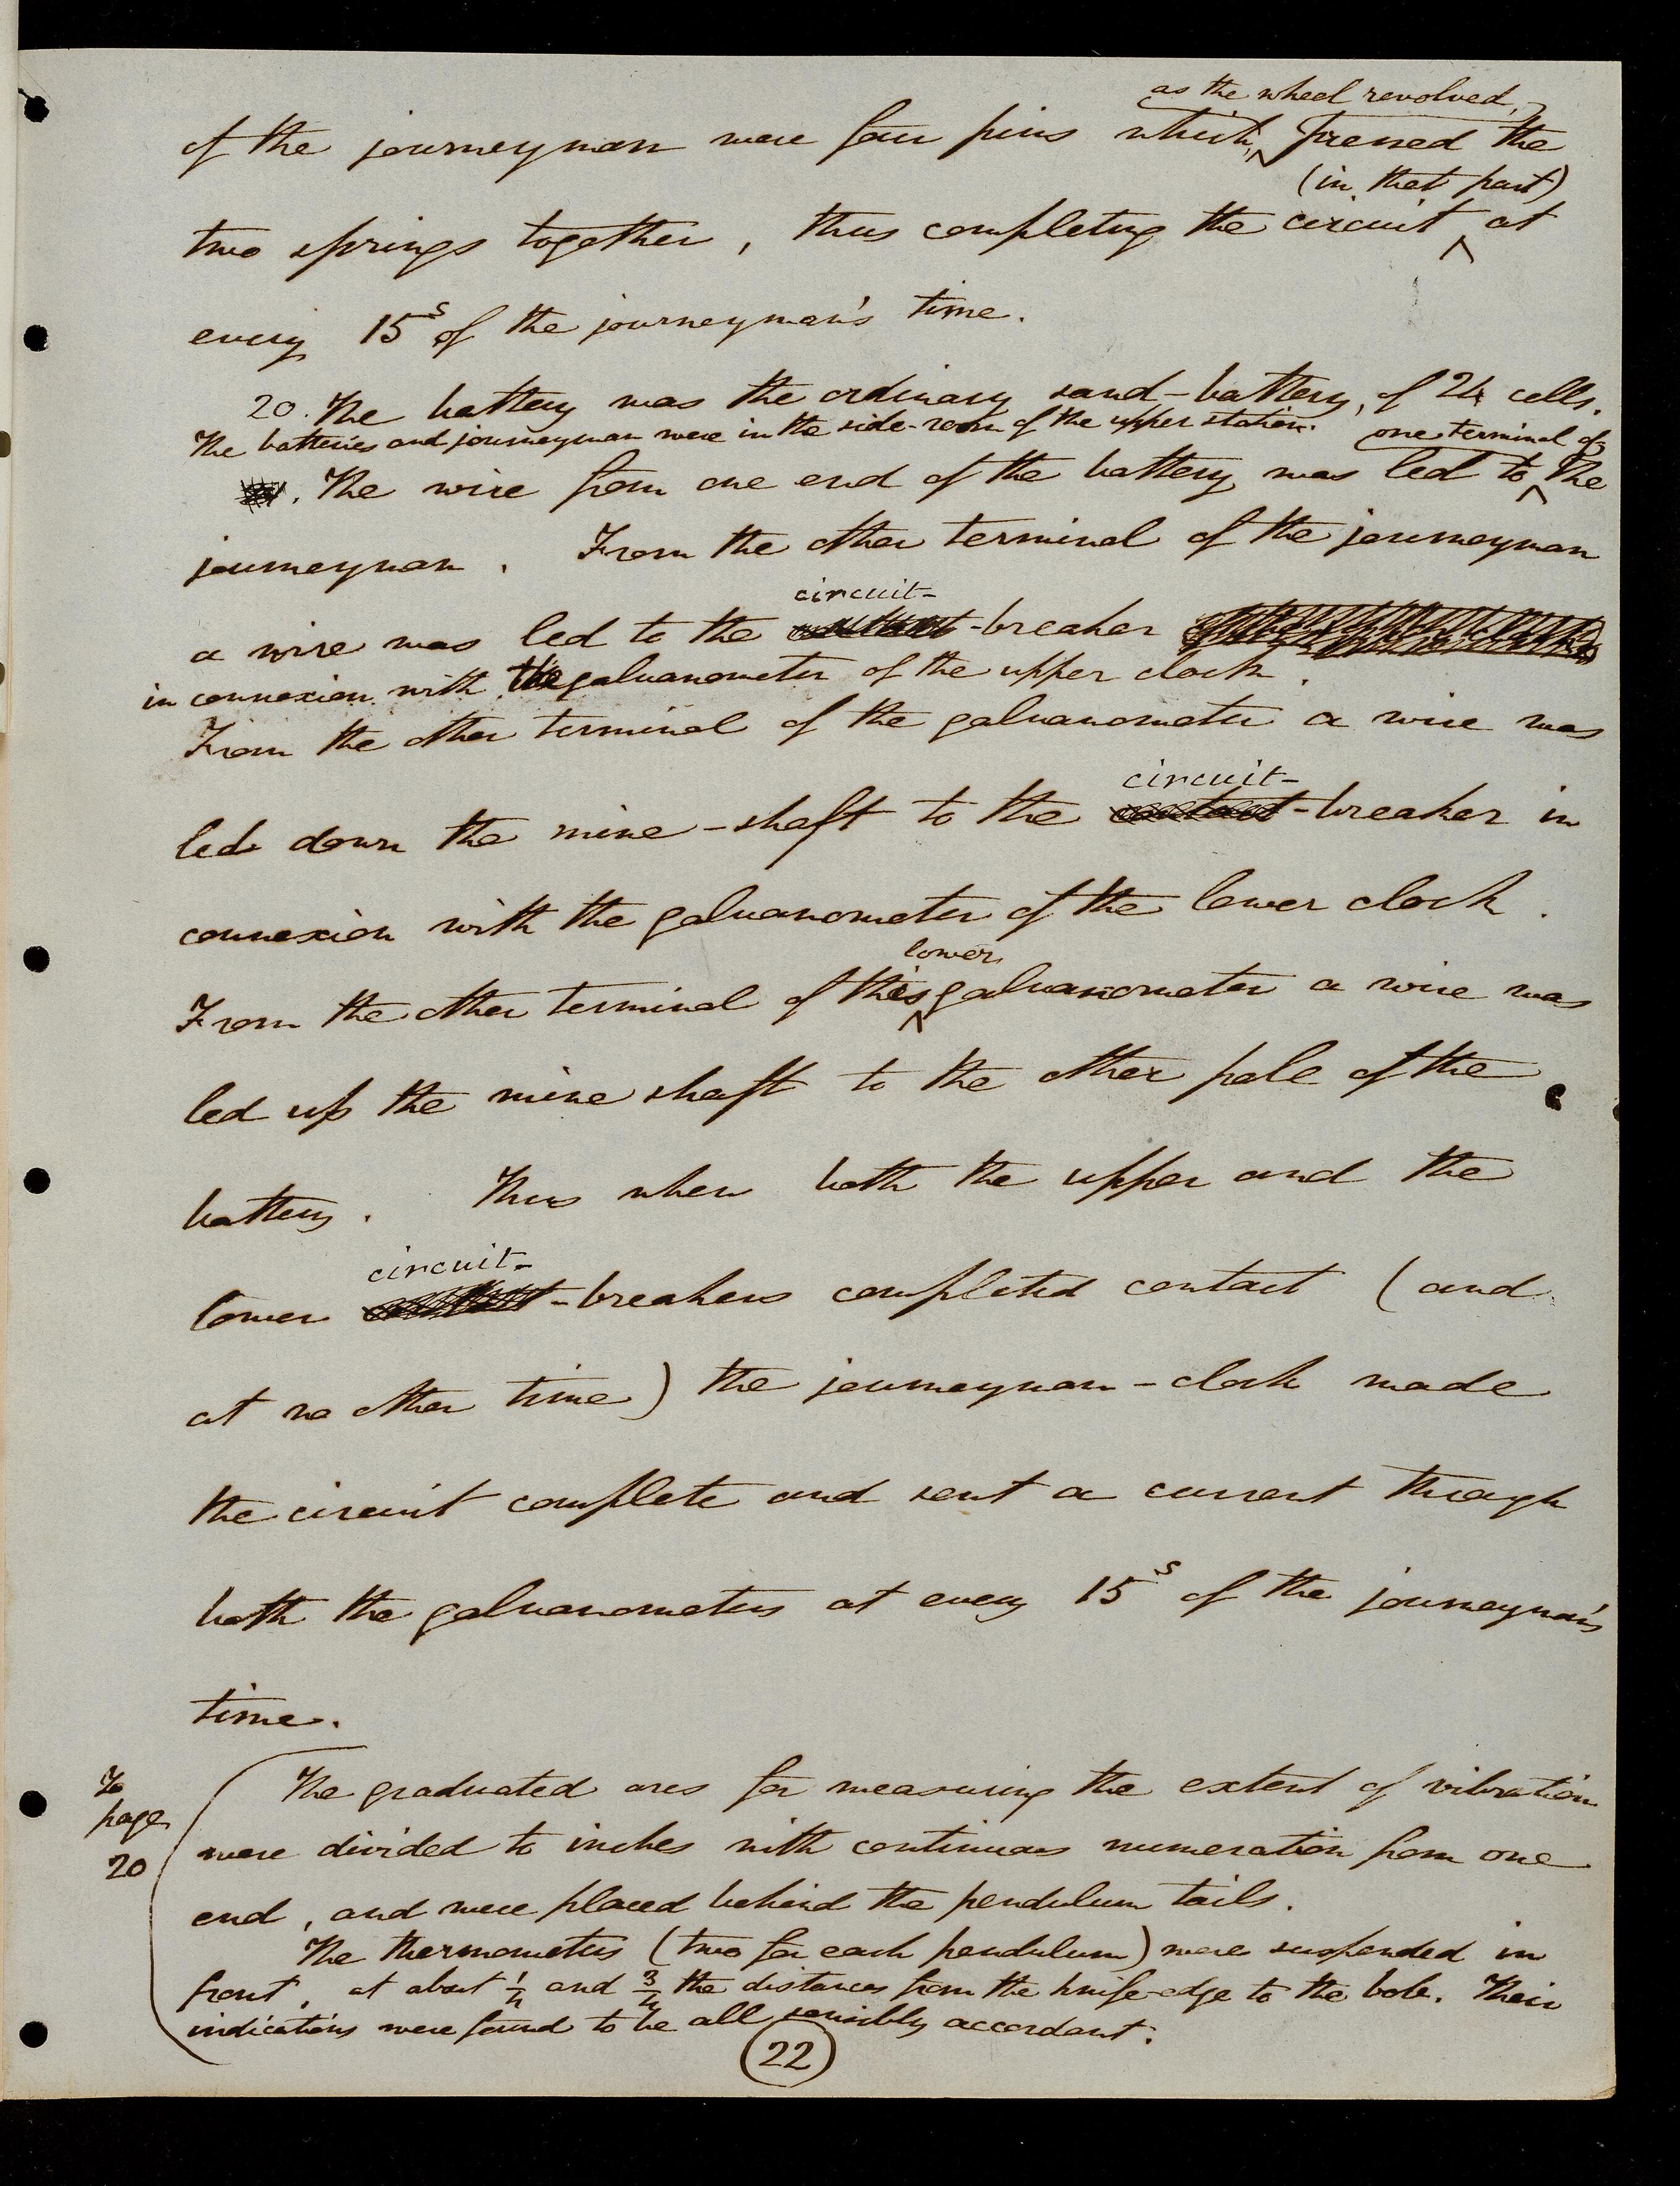 as the wheel revolved,
of the journeyman were four pins which, pressed the
(in that part)
two springs together, thus completing the circuit at
every 15s of the journeyman's time.
20. The battery was the ordinary sand-battery, of 24 cells.
The batteries and journeyman were in the side-room of the upper station. one terminal of
. The wire from one end of the battery was led to the
journeyman. From the other terminal of the journeyman
circuit-
a wire was led to the contact-breaker
in connexion with the galvanometer of the upper clock.
From the other terminal of the galvanometer a wire was
circuit-
led down the mine-shaft to the contact-breaker in
connexion with the galvanometer of the lower clock.
lower
From the other terminal of this galvanometer a wire was
led up the mine shaft to the other pole of the
battery. Thus when both the upper and the
circuit-
lower contact-breakers completed contact (and
at no other time) the journeyman-clock made
the circuit complete and sent a current through
both the galvanometers at every 15s of the journeyman's
time.
To
page
20
The graduated arcs for measuring the extent of vibration
were divided to inches with continuous numeration from one
end, and were placed behind the pendulum tails.
The thermometers (two for each pendulum) were suspended in
front, at about 1/4 and 3/4 the distances from the knife-edge to the bob. Their
indications were found to be all sensibly accordant.
22